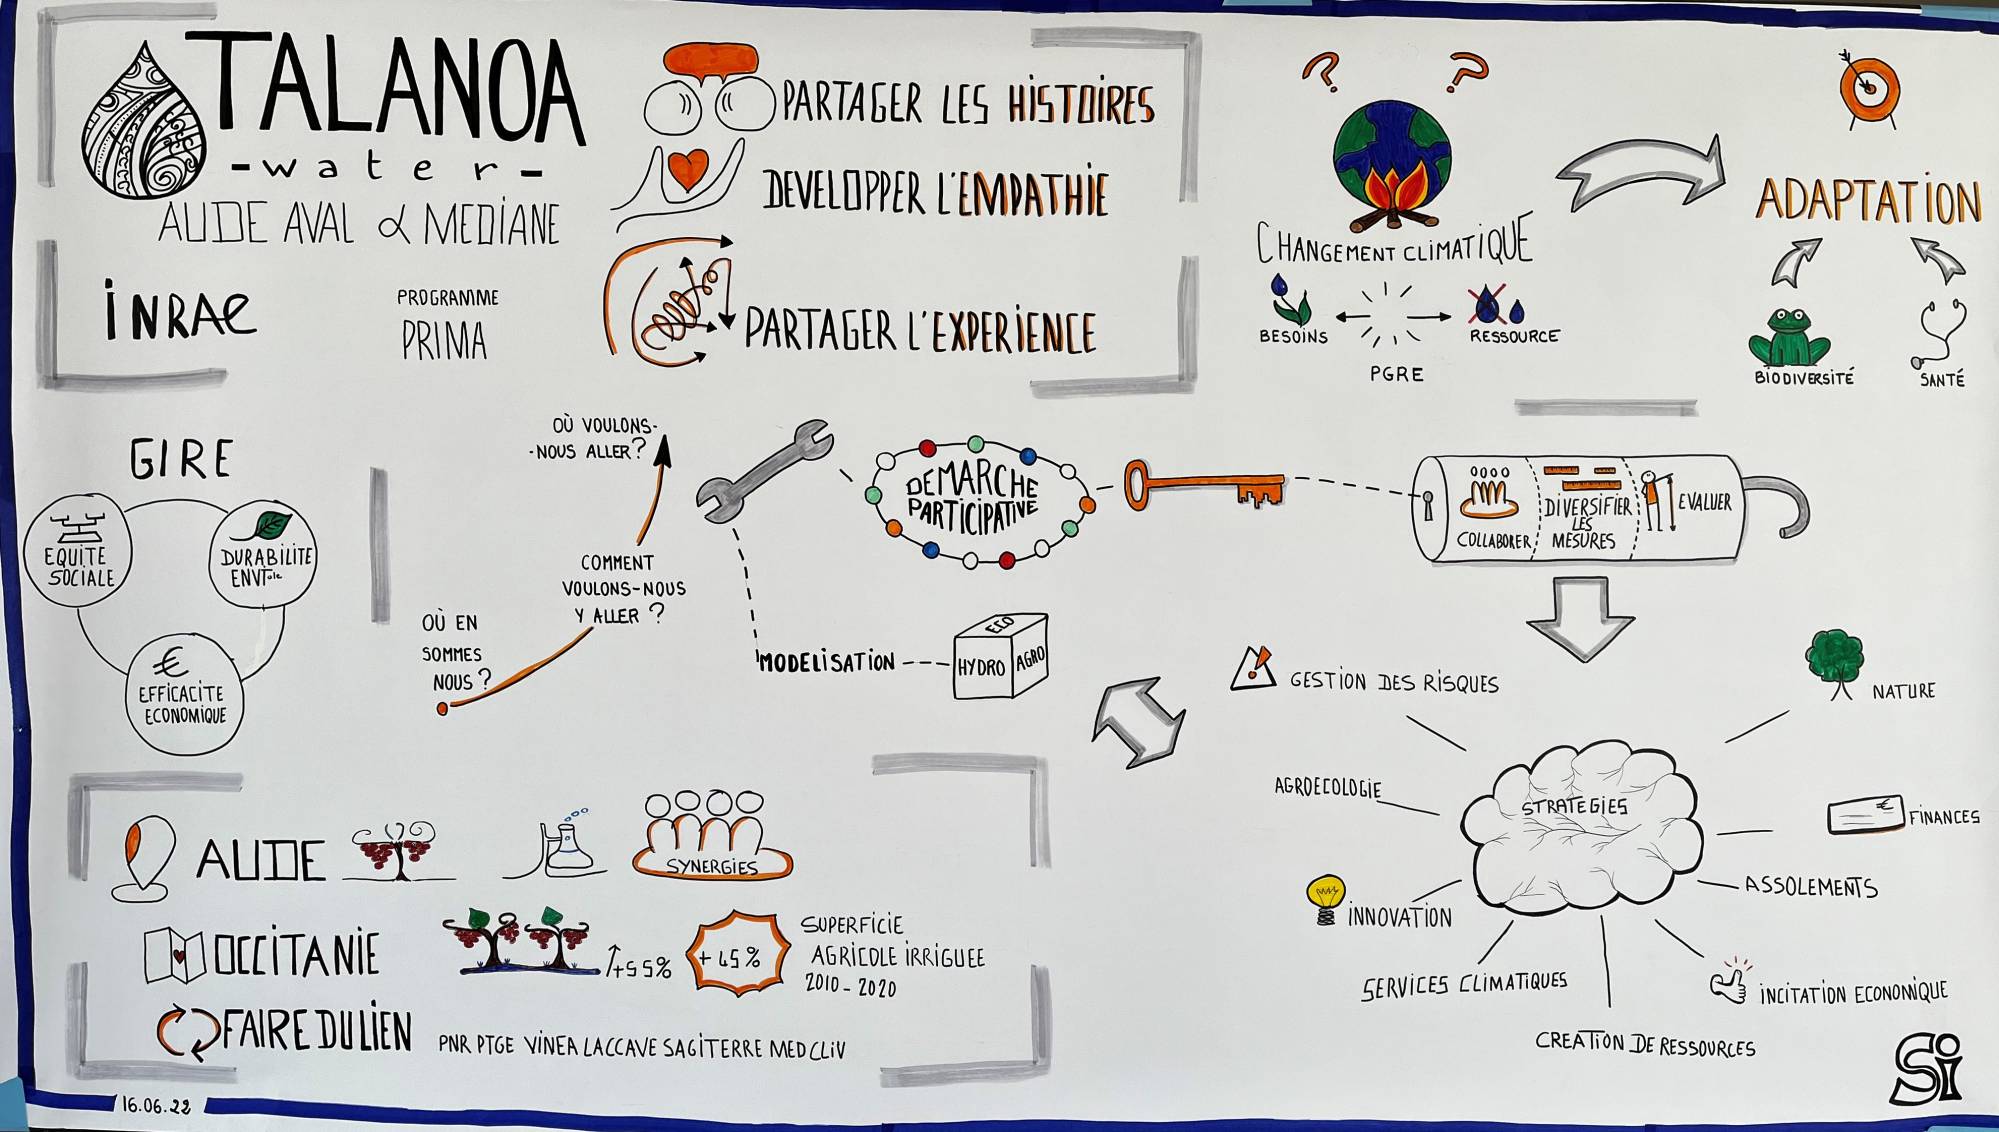 TALANOA
- water -
AUDE AVAL & MEDIANE
INRAE
PROGRAMME
PRIMA
PARTAGER LES HISTOIRES
DEVELOPPER L'EMPATHIE
PARTAGER L'EXPERIENCE
? ?
CHANGEMENT CLIMATIQUE
BESOINS
RESSOURCE
PGRE
ADAPTATION
BIODIVERSITÉ
SANTÉ
GIRE
EQUITE
SOCIALE
DURABILITE
ENVTale
€
EFFICACITE
ECONOMIQUE
OÙ VOULONS-
-NOUS ALLER?
COMMENT
VOULONS-NOUS
Y ALLER ?
OÙ EN
SOMMES
NOUS ?
DEMARCHE
PARTICIPATIVE
MODELISATION
ECO
HYDRO
AGRO
COLLABORER
DIVERSIFIER
LES
MESURES
EVALUER
GESTION DES RISQUES
NATURE
AGROECOLOGIE
STRATEGIES
€
FINANCES
ASSOLEMENTS
INNOVATION
SERVICES CLIMATIQUES
INCITATION ECONOMIQUE
CREATION DE RESSOURCES
AUDE
SYNERGIES
OCCITANIE
+55%
+45%
SUPERFICIE
AGRICOLE IRRIGUEE
2010-2020
FAIRE DU LIEN
PNR PTGE VINEA LACCAVE SAGITERRE MEDCLIV
16.06.22
Si